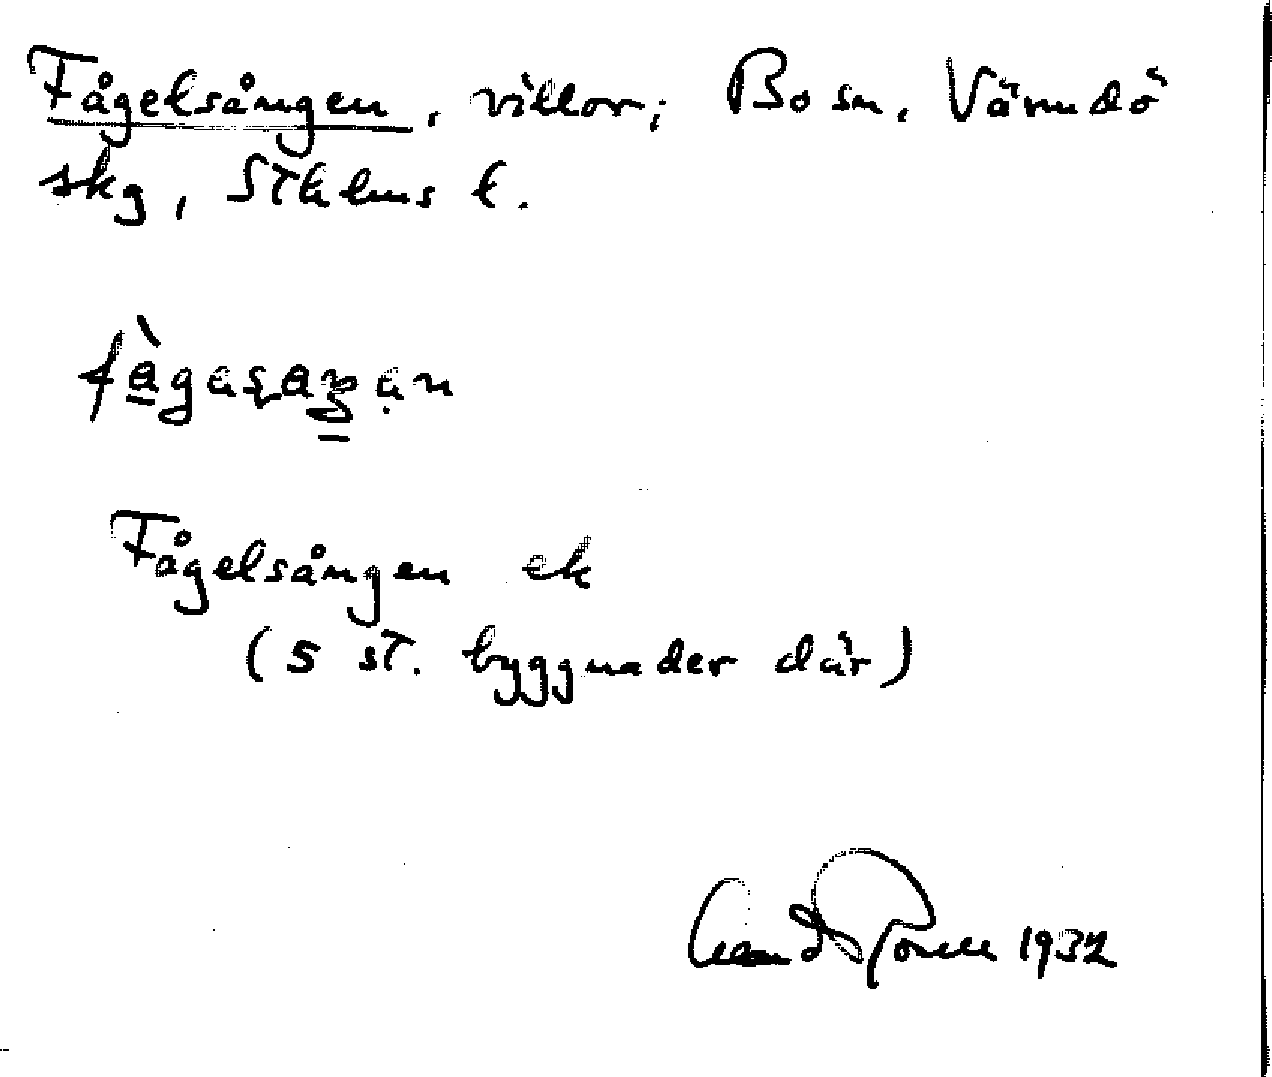 Fågelsången, villor; Bo sn, Värmdö
skg, Sthlms l.
Fågelsången ek
(5 st. byggnader där)
1932